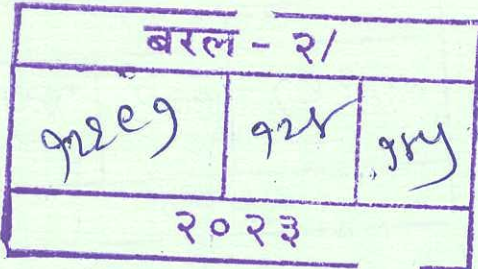 बरल - २/
१२२९१ १२४ १४५
२०२३